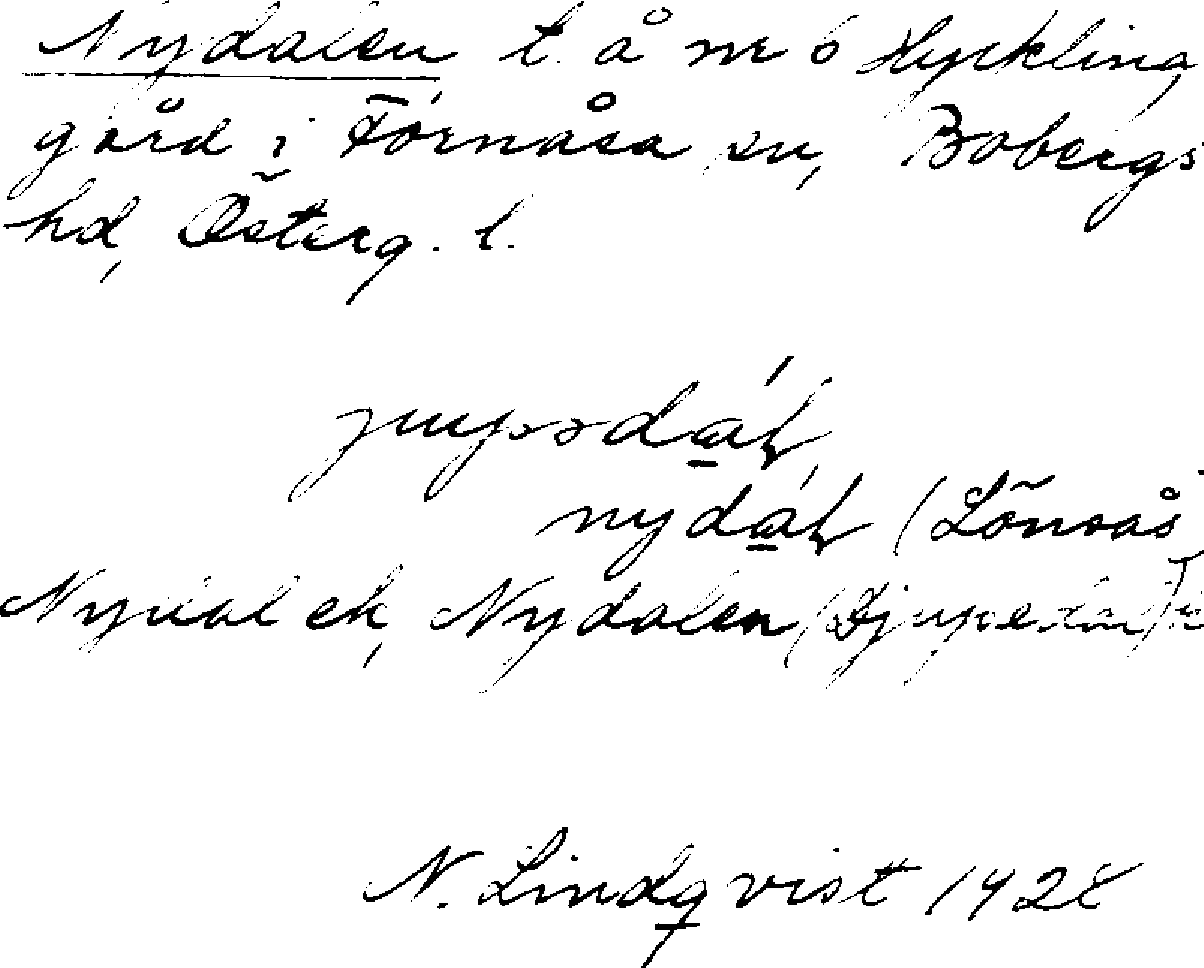 Nydalen, t. å nr 6 Hyckling
gård i Fornåsa sn, Bobergs
hd, Österg. l.
jupədal,
nydal (Lönsås
Nydal ek, Nydalen (Djupedal)
N. Lindqvist 1928